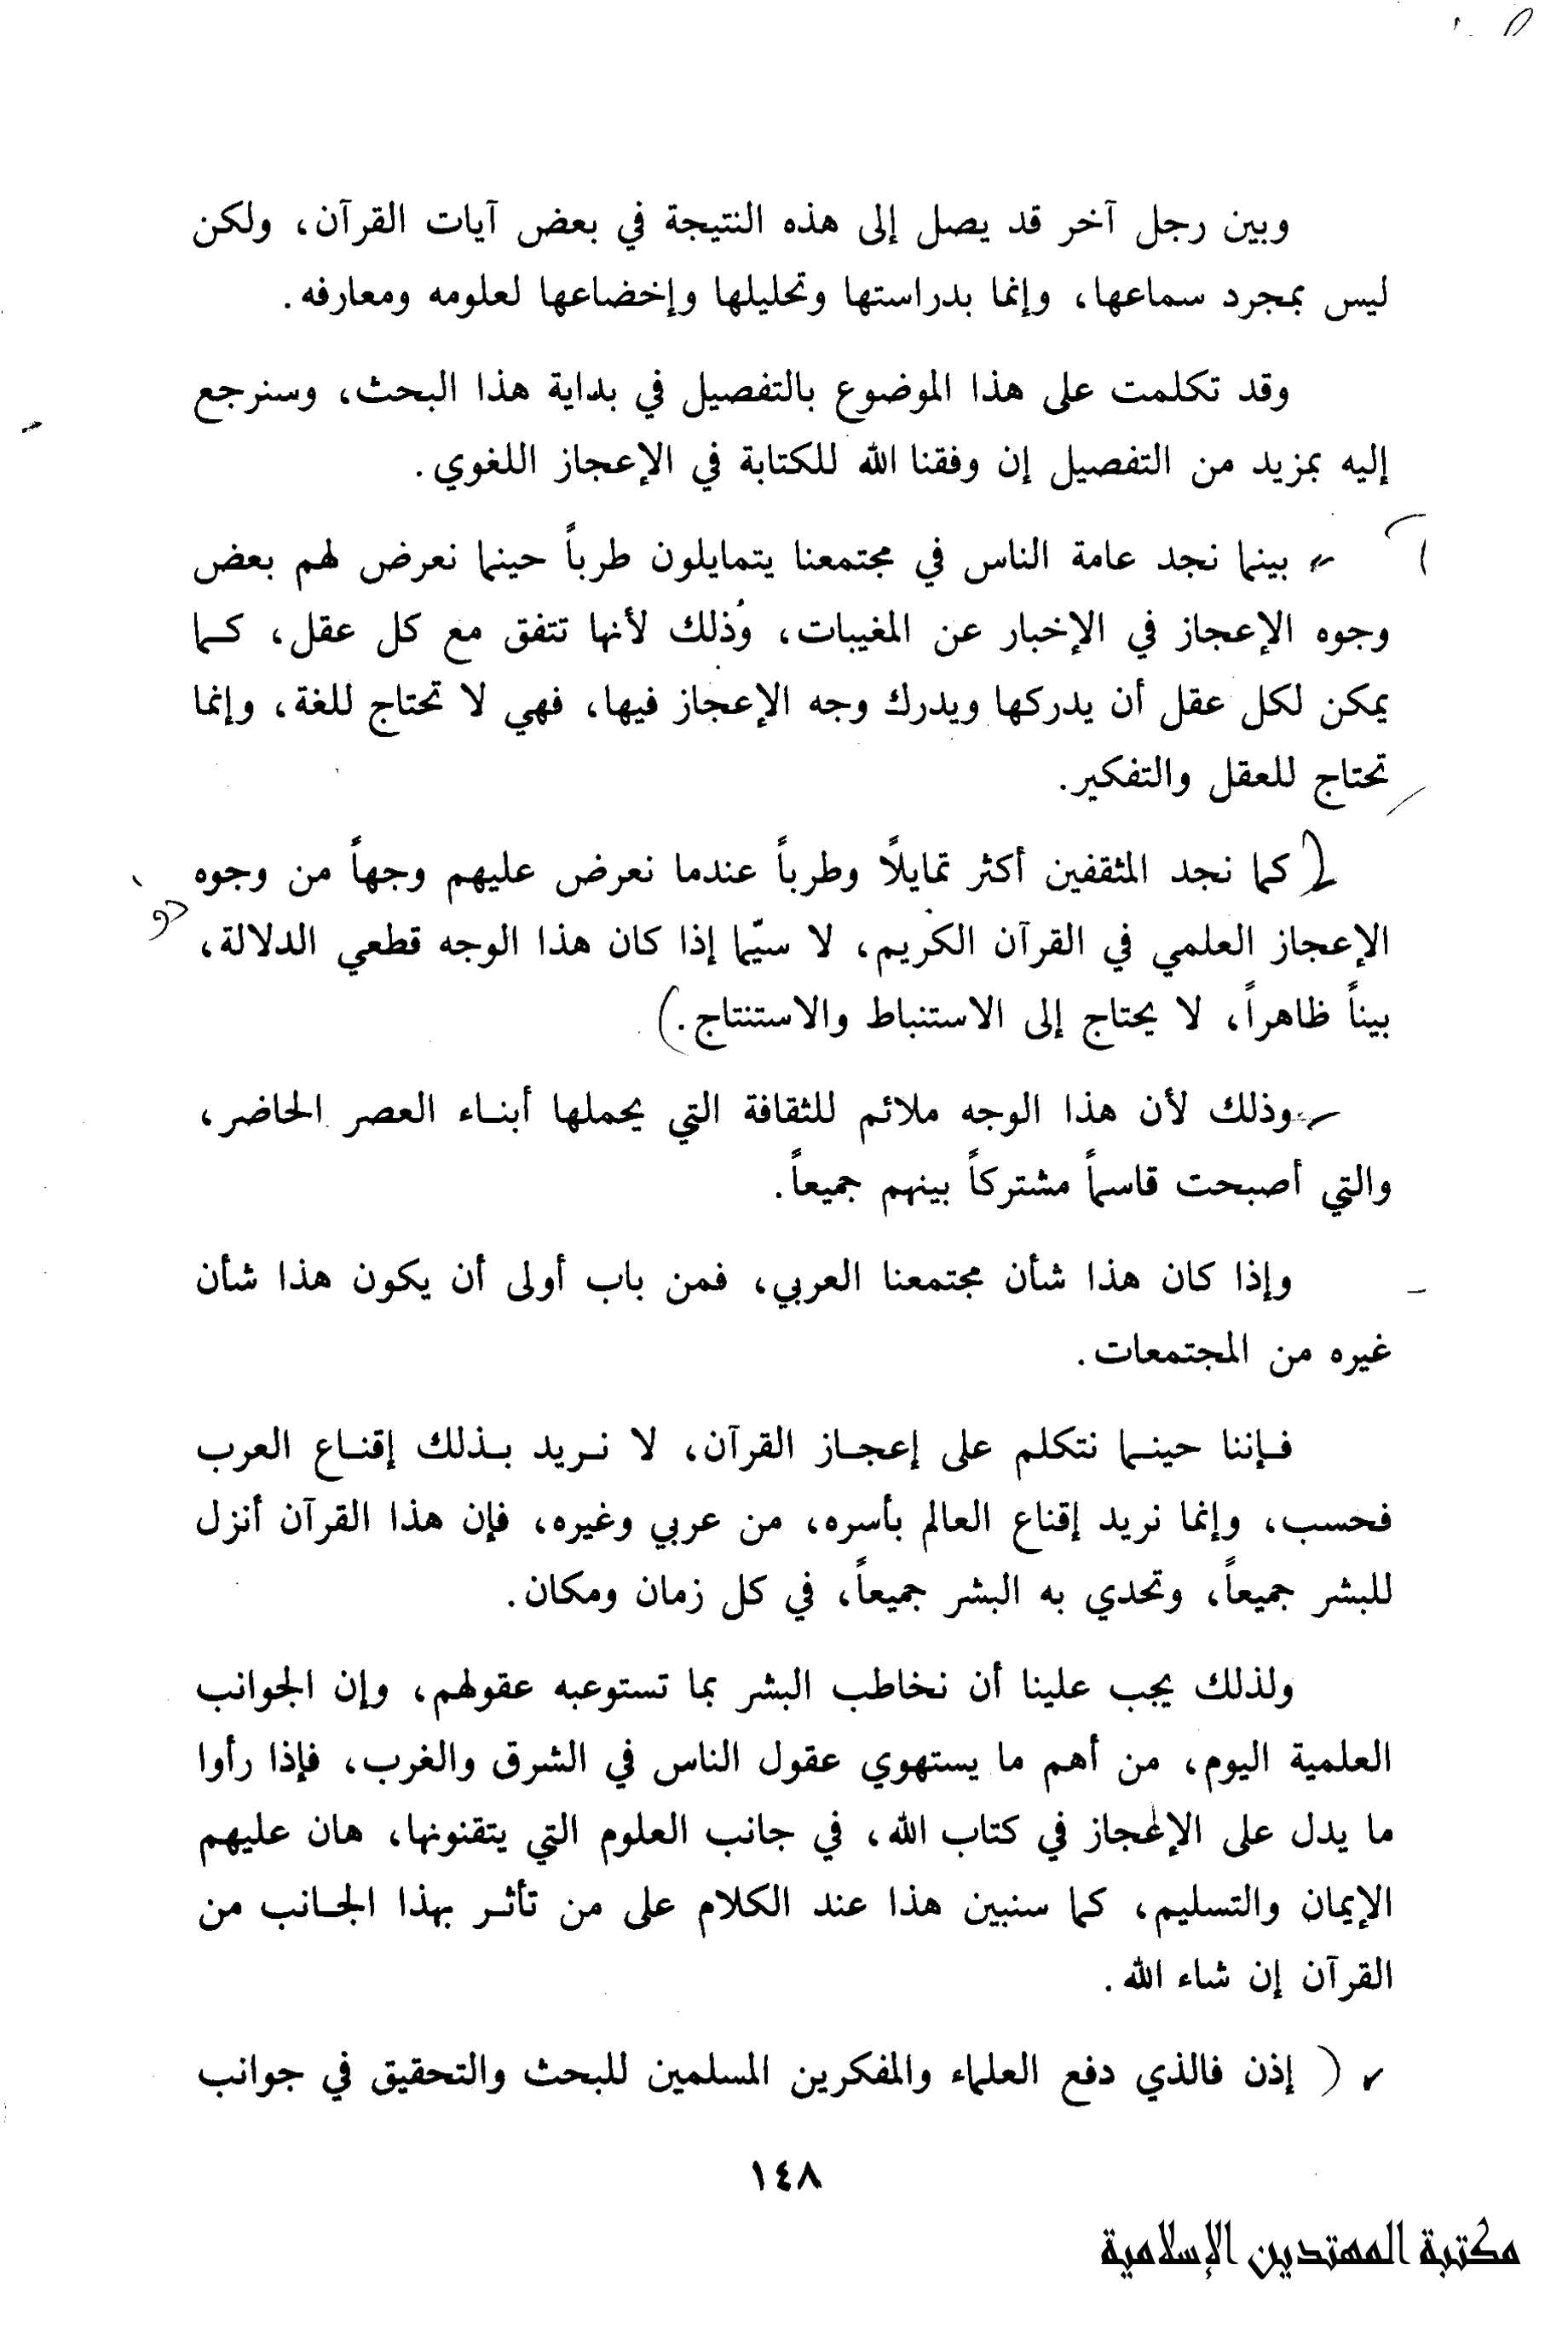 وبين رجل آخر قد يصل إلى هذه النتيجة في بعض آيات القرآن، ولكن
ليس بمجرد سماعها، وإنما بدراستها وتحليلها وإخضاعها لعلومه ومعارفه.
وقد تكلمت على هذا الموضوع بالتفصيل في بداية هذا البحث، وسنرجع
إليه بمزيد من التفصيل إن وفقنا الله للكتابة في الإعجاز اللغوي.
بينما نجد عامة الناس في مجتمعنا يتمايلون طرباً حينما نعرض لهم بعض
وجوه الإعجاز في الإخبار عن المغيبات، وذلك لأنها تتفق مع كل عقل، كما
يمكن لكل عقل أن يدركها ويدرك وجه الإعجاز فيها، فهي لا تحتاج للغة، وإنما
تحتاج للعقل والتفكير.
كما نجد المثقفين أكثر تمايلاً وطرباً عندما نعرض عليهم وجهاً من وجوه
الإعجاز العلمي في القرآن الكريم، لا سيّما إذا كان هذا الوجه قطعي الدلالة،
بيناً ظاهراً، لا يحتاج إلى الاستنباط والاستنتاج.)
وذلك لأن هذا الوجه ملائم للثقافة التي يحملها أبناء العصر الحاضر،
والتي أصبحت قاسماً مشتركاً بينهم جميعاً.
وإذا كان هذا شأن مجتمعنا العربي، فمن باب أولى أن يكون هذا شأن
غيره من المجتمعات.
فإننا حينما نتكلم على إعجاز القرآن، لا نريد بذلك إقناع العرب
فحسب، وإنما نريد إقناع العالم بأسره، من عربي وغيره، فإن هذا القرآن أنزل
للبشر جميعاً، وتحدي به البشر جميعاً، في كل زمان ومكان.
ولذلك يجب علينا أن نخاطب البشر بما تستوعبه عقولهم، وإن الجوانب
العلمية اليوم، من أهم ما يستهوي عقول الناس في الشرق والغرب، فإذا رأوا
ما يدل على الإعجاز في كتاب الله، في جانب العلوم التي يتقنونها، هان عليهم
الإيمان والتسليم، كما سنبين هذا عند الكلام على من تأثر بهذا الجانب من
القرآن إن شاء الله.
( إذن فالذي دفع العلماء والمفكرين المسلمين للبحث والتحقيق في جوانب
١٤٨
مكتبة المهتدين الإسلامية